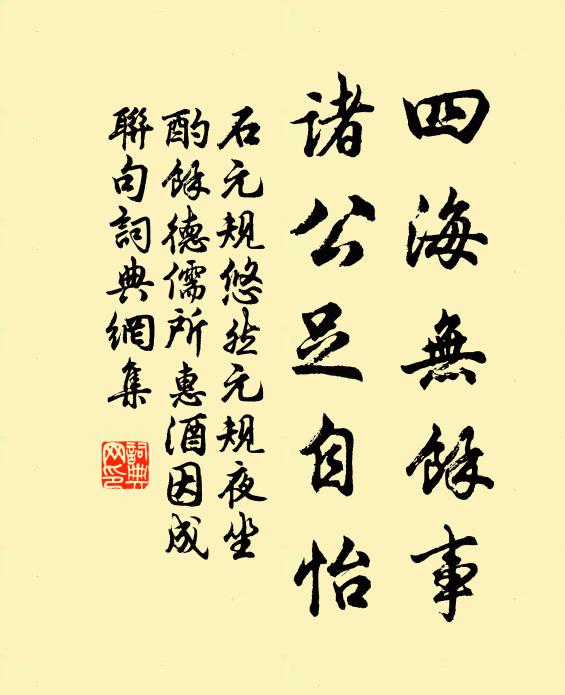 四海無餘事
諸公足自怡
石元規悠然元規夜坐
酌餘德儒所惠酒因成
聯句詞典網集
詞典网印